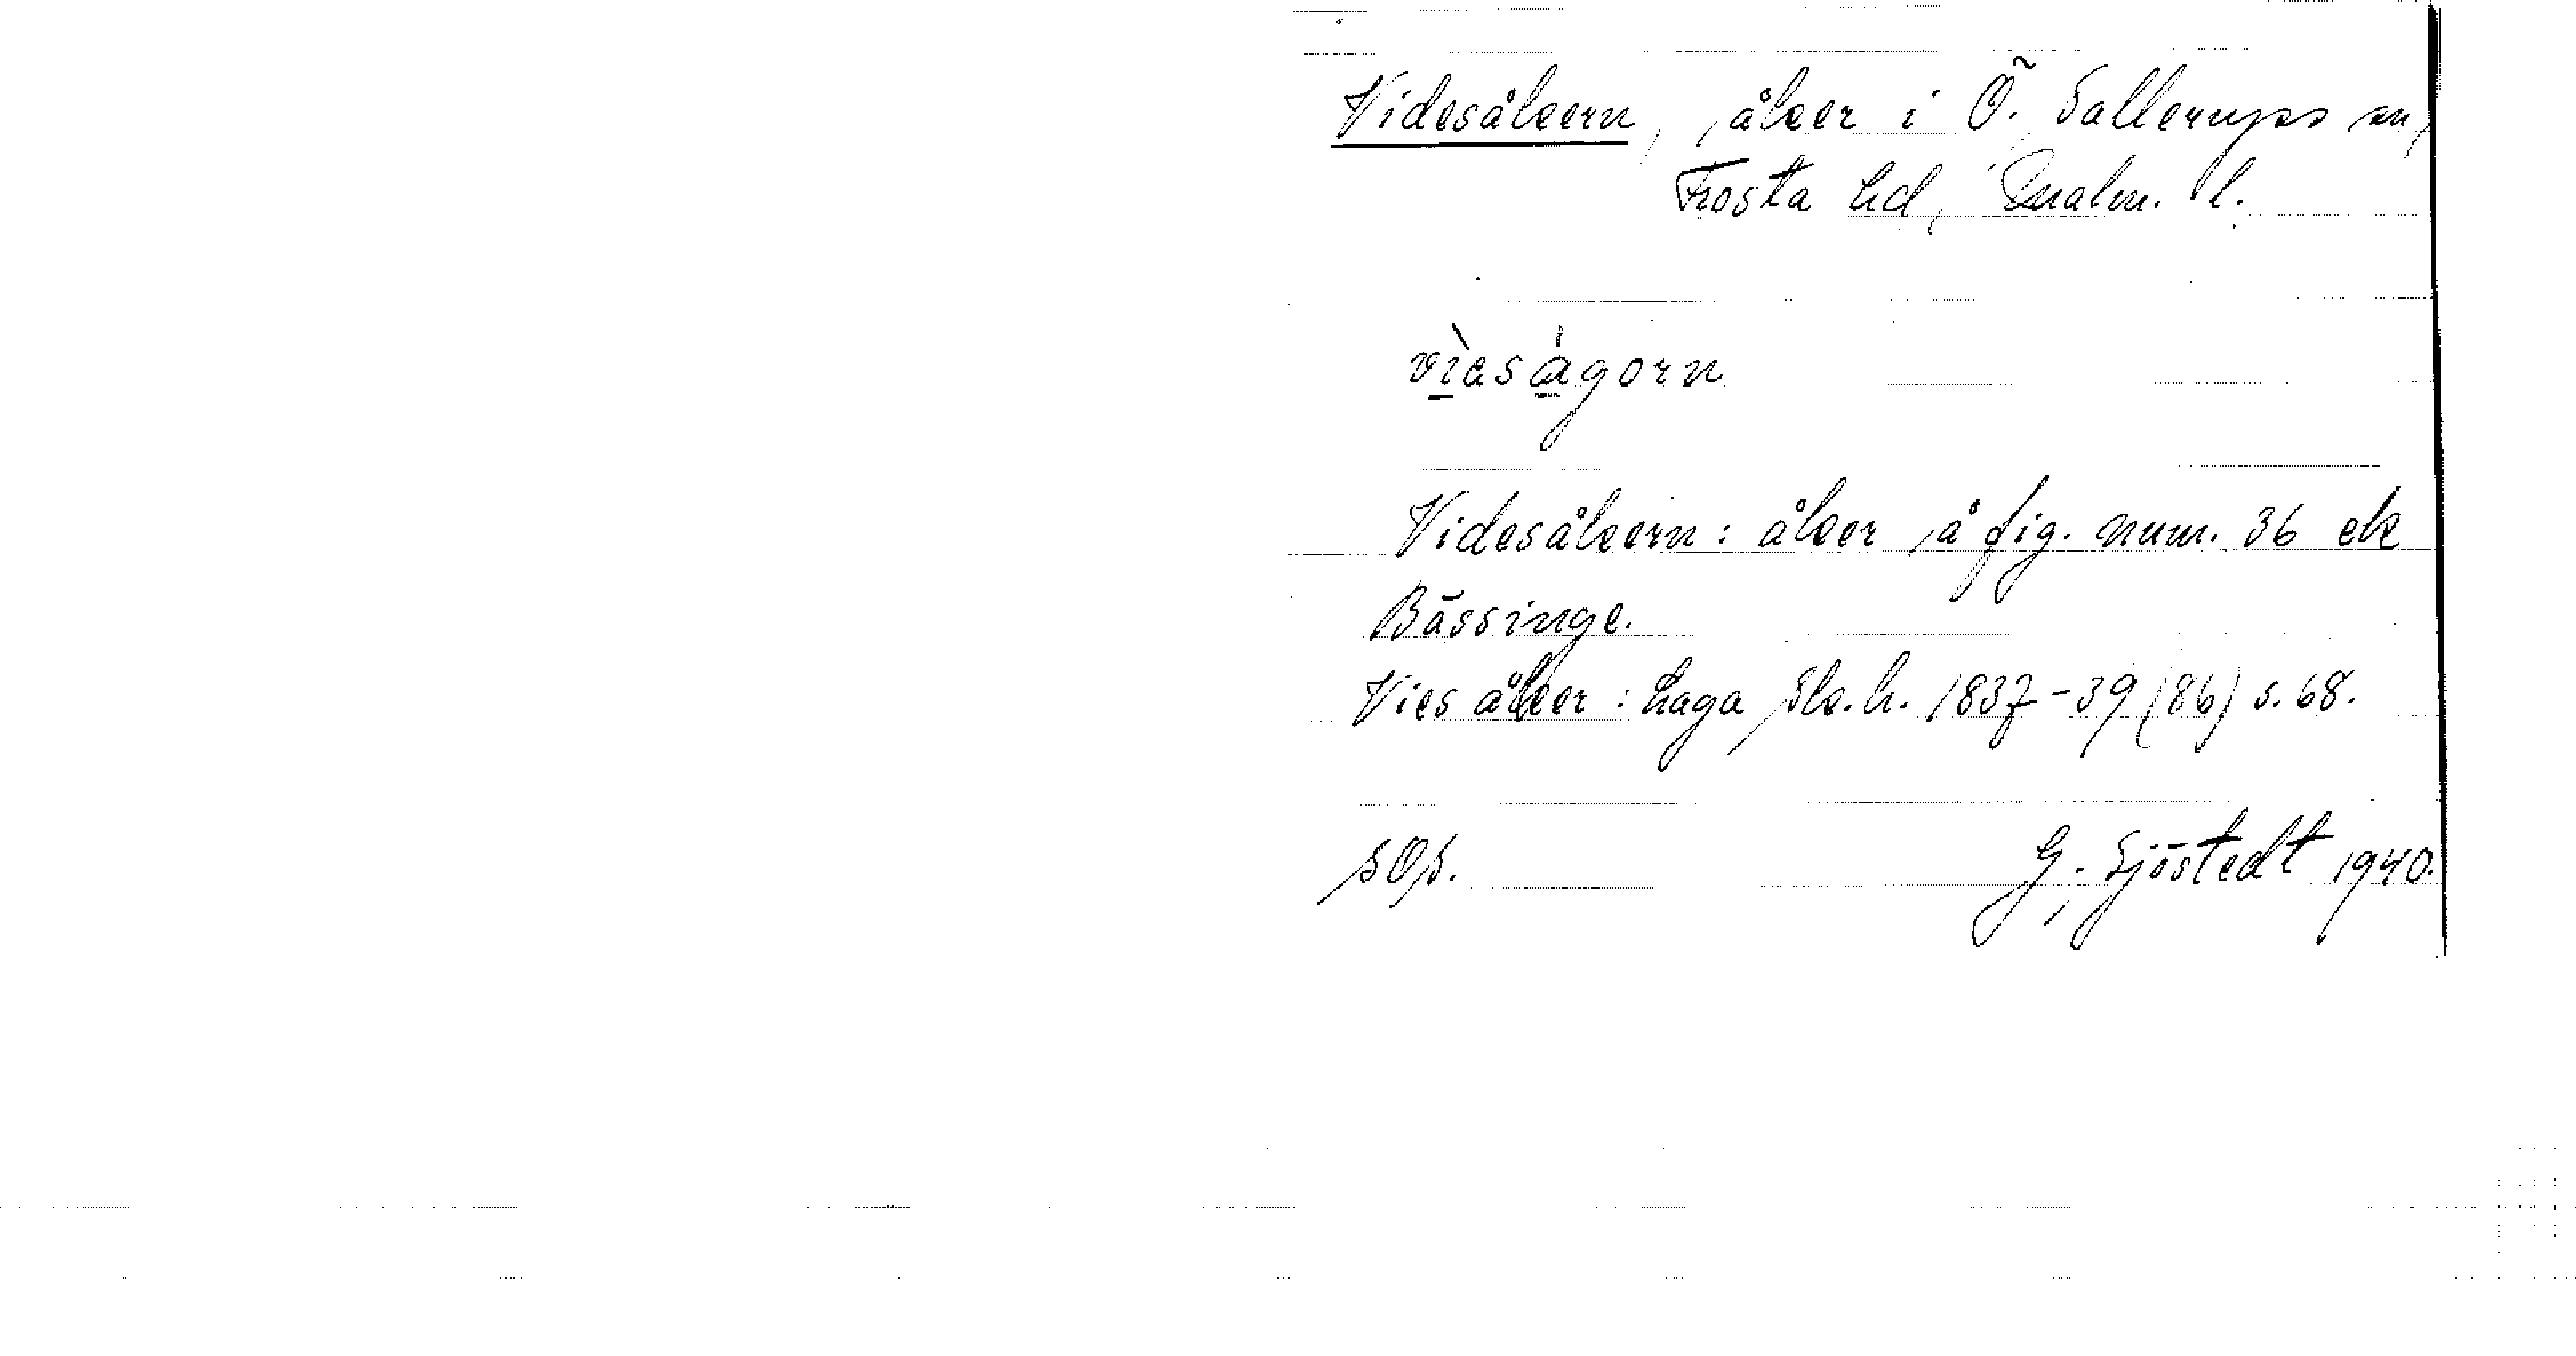 Videsåkern, åker i Ö. Sallerups sn,
Frosta hd, Malm. l.
vìesågorn
Videsåkern: åker på fig. num. 36 ek
Bässinge.
Vies åker: Laga sk.h. 1837-39 (86) s. 68.
G. Sjöstedt 1940.